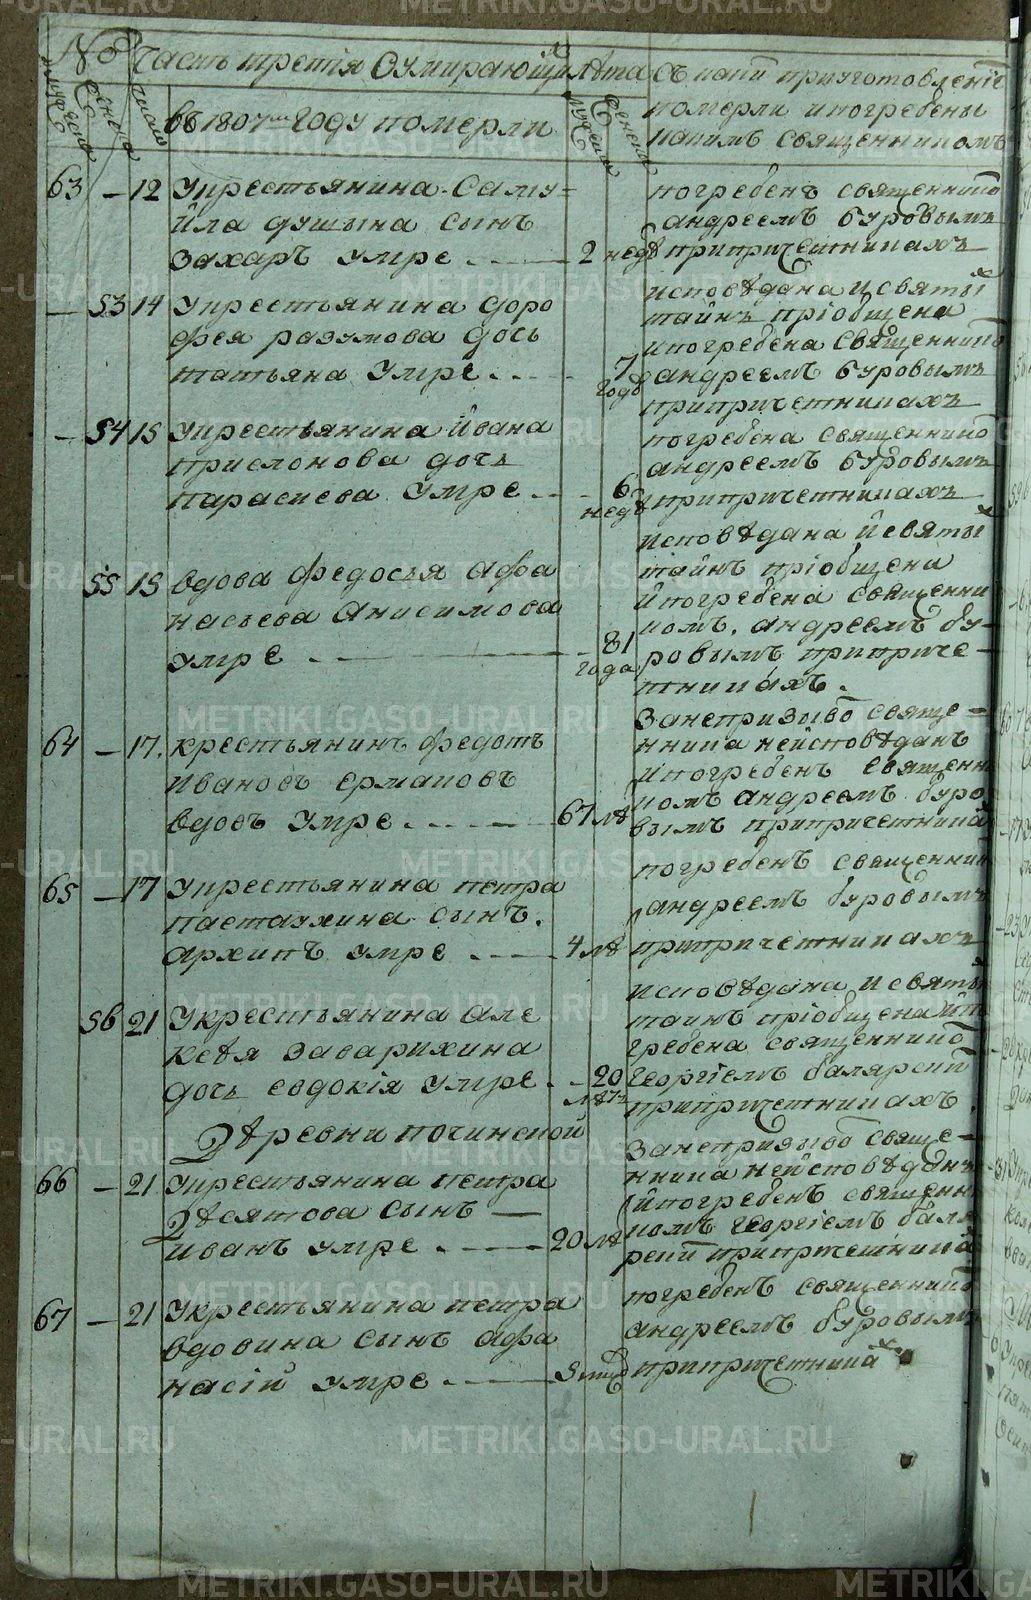 № Часть третія Оумирающихъ Лѣта Съ каки приуготовленіе
мужеска
женска
число
въ 1807м Году померли
мужеска
женска
померли и погребены
какимъ священникомъ
63 — 12 у крестьянина Саму-
йла душына сынъ
Захаръ умре 2 недѣ
погребенъ священнико
андреемъ буровымъ
при причетникахъ
— 53 14 у крестьянина доро
фея разумова дочь
татьяна умре 7 годъ
исповѣдана и святы
тайнъ пріобщена
и погребена священнико
андреемъ буровымъ
при причетникахъ
— 54 15 у крестьянина йвана
прислонова дочь
параскева умре 6 недѣ
погребена священнико
андреемъ буровымъ
при причетникахъ
55 15 вдова федосья афа
насьева анисимова
умре 81 года
исповѣдана й святы
тайнъ пріобщена
й погребена священни
комъ андреемъ бу-
ровымъ при приче-
тникахъ.
64 — 17. крестьянинъ федотъ
ивановъ ермаковъ
вдовъ умре 67 лѣ
За непризыво свяще-
нника неисповѣданъ
и погребенъ священн
комъ андреемъ буро
вымъ при причетника
65 — 17 у крестьянина петра
пастаухина сынъ.
архипъ умре 4 лѣ
погребенъ священник
андреемъ буровымъ
при причетникахъ
56 21 у крестьянина але
ксѣя заварихина
дочь евдокія умре 20 лѣтъ
исповѣдана и святы
таинъ пріобщена ип
гребена священнико
георгіемъ баляреки
при причетникахъ.
Деревни починской
66 — 21 у крестьянина петра
Десятова сынъ —
иванъ умре 20 лѣ
За непризыво свяще-
нника неисповѣданъ
й погребенъ священн
комъ георгіемъ баля
реки при причетника
67 — 21 у крестьянина петра
вдовина сынъ афа
насій умре
погребенъ священнико
андреемъ буровымъ
при причетника
METRIKI.GASO-URAL.RU